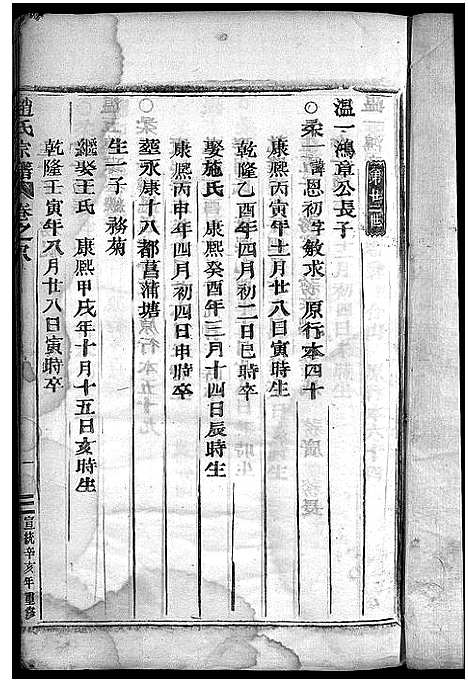 溫一鴻章公長子
○柔一諱恩初字敏求　原行本四十
康熙丙寅年十一月廿八日寅時生
乾隆乙酉年四月初二日巳時卒
娶施氏　康熙癸酉年三月十四日辰時生
康熙丙申年四月初四日申時卒
塟永康十八都菖蒲塘
生一子　務菊
繼娶王氏　康熙甲戌年十月十五日亥時生
乾隆壬寅年八月廿八日寅時卒
趙氏宗譜　卷之
一
宣統辛亥年重修